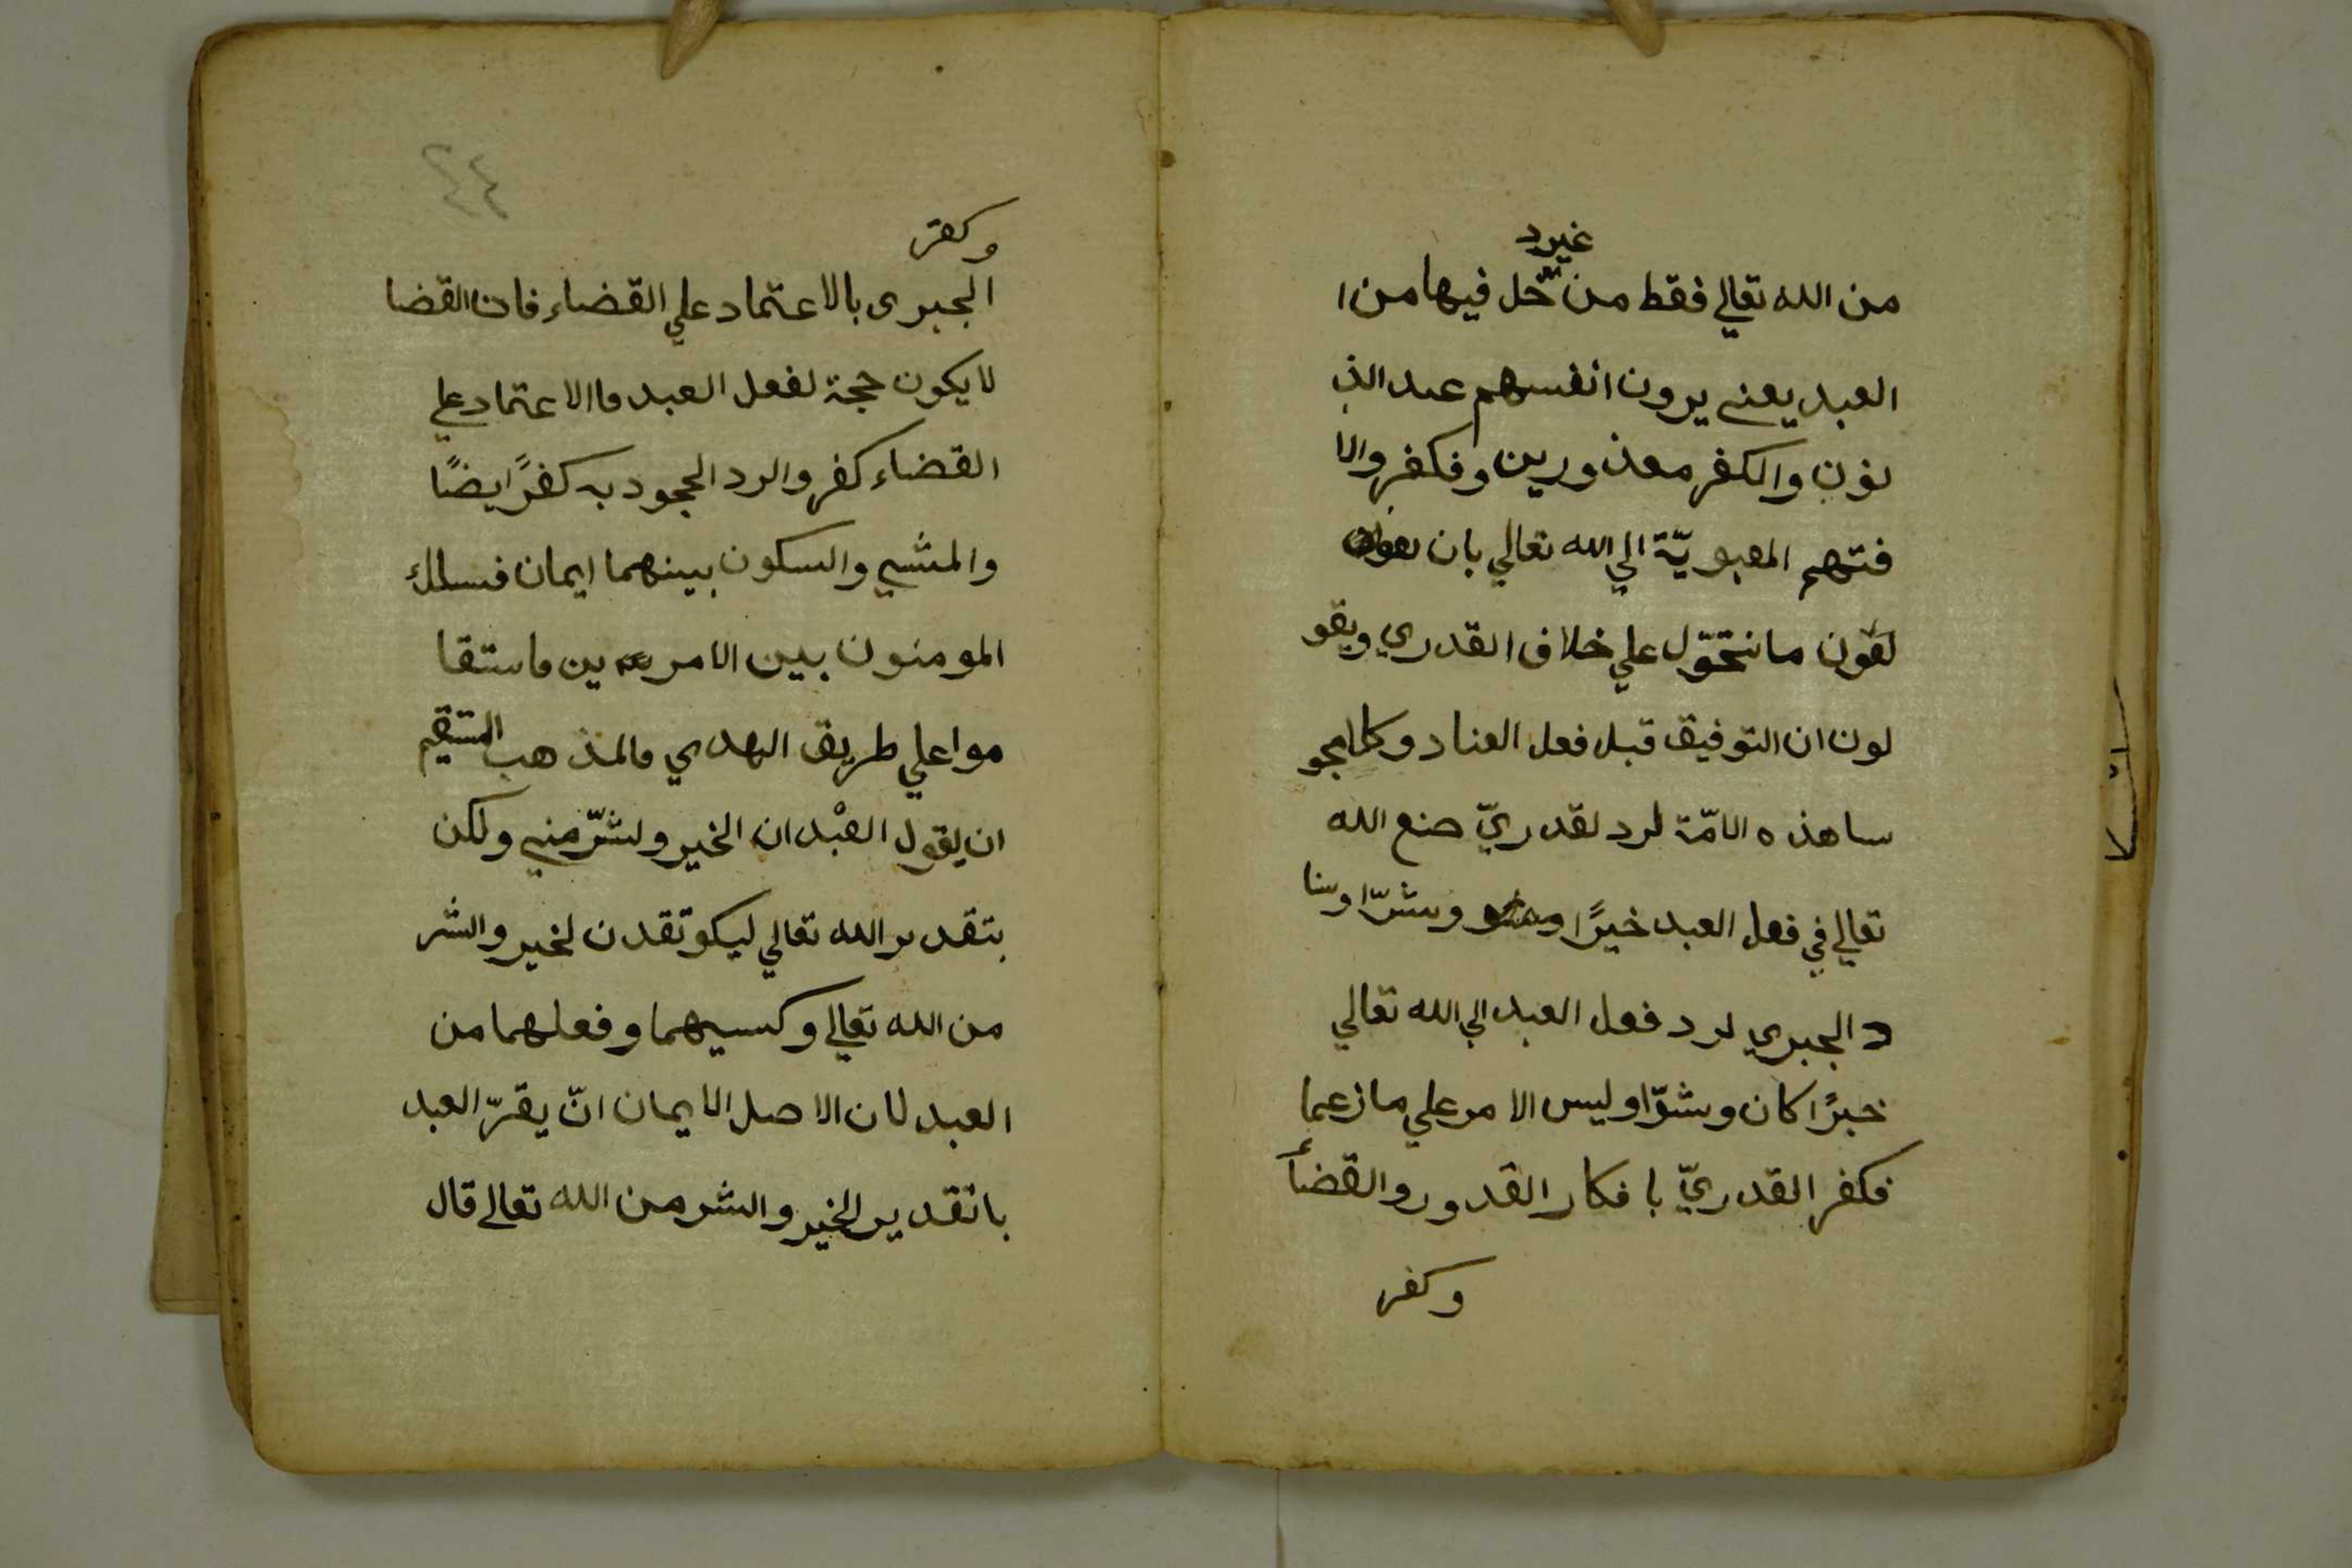 غيرد
من الله تعالي فقط من خل فيها من ا
العبد يعني يرون انفسهم عند الذ
نون والكفر معذورين وفكفر والا
فتهم المعبويّة الي الله تعالي بان
لقون ما نتحوّل علي خلاف القدري ويقو
لون ان التوفيق قبل فعل العناد وكلا مجو
سا هذه الامّة لرد لقدريّ صنع الله
تعالي في فعل العبد خيرًا وشرّا وسنا
د الجبري لرد فعل العبد الي الله تعالي
خيرًا كان وشرّا وليس الامر علي ما زعما
فكفر القدريّ با فكار القدور والقضأ
وكفر
٤٤
وكفر
الجبرى بالاعتماد علي القضاء فان القضا
لا يكون حجة لفعل العبد فاالاعتماد علي
القضاء كفر والرد الجحود به كفرً ايضًا
والمشي والسكون بينهما ايمان فسلك
المومنون بين الامر ين فاستقا
موا علي طريق الهدي فالمذهب المتقيم
ان يقول العبْد ان الخير ولشرّ مني ولكن
بتقدير الله تعالي ليكو تقدن لخير والشر
من الله تعالي وكسبهما وفعلهما من
العبد لان الاصل الايمان انّ يقرّ العبد
باتقدير الخير والشر من الله تعالي قال